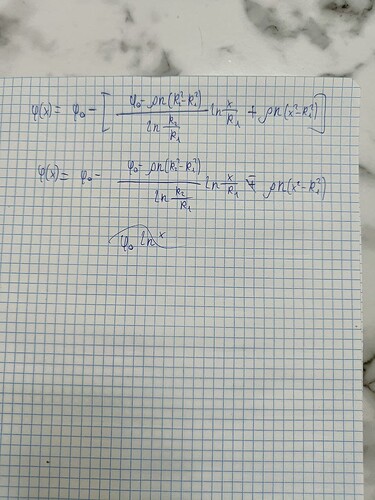 φ(x) = φ₀ - [ (φ₀ - ρπ(R₂² - R₁²)) / (ln R₂/R₁) ln x/R₁ + ρπ(x² - R₁²) ]
φ(x) = φ₀ - (φ₀ - ρπ(R₂² - R₁²)) / (ln R₂/R₁) ln x/R₁ ∓ ρπ(x² - R₁²)
φ₀ ln x